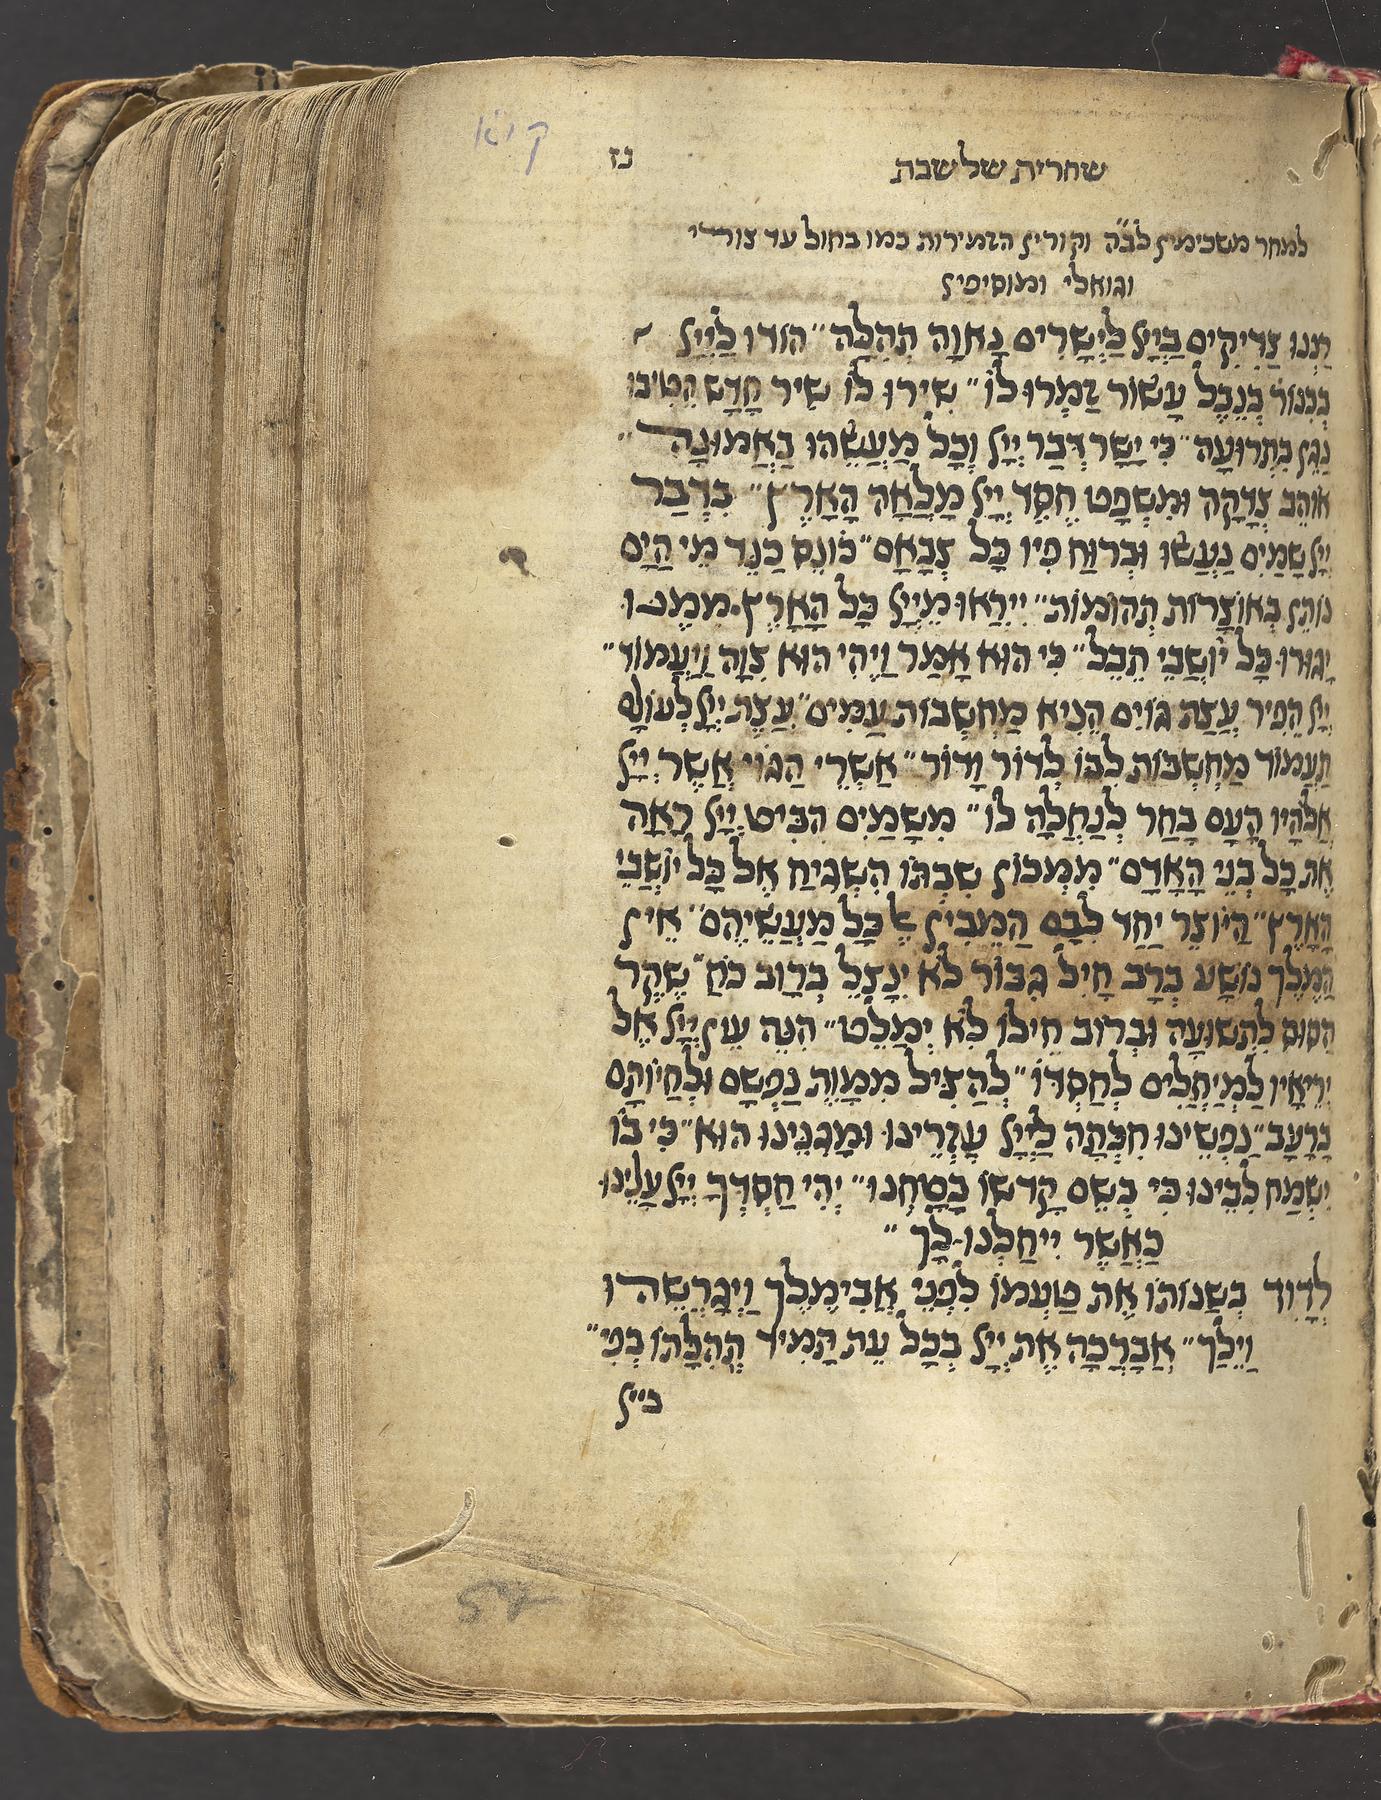 קיא
נז
שחרית של שבת
למחר משכימין לב״ה וקורין הזמירות כמו בחול עד צורי
וגואלי ומוסיפין
רַנְּנוּ צַדִיקִים בַּיְיָ לַיְשָׁרִים נָאוָה תְהִלָּה״ הודו לַיְיָ
בְּכִנוֹר בְּנֵבֶל עָשׂוֹר זַמְּרוּ לוֹ״ שִׁירוּ לוֹ שִׁיר חָדָשׁ הֵטִיבוּ
נַגֵּן בִּתְרוּעָה״ כִּי יָשָׁר דְּבַר יְיָ וְכָל מַעֲשֵׂהוּ בֶּאֱמוּנָה״
אוֹהֵב צְדָקָה וּמִשְׁפָּט חֶסֶד יְיָ מָלְאָה הָאָרֶץ״ בִּדְבַר
יְיָ שָׁמַיִם נַעֲשׂוּ וּבְרוּחַ פִּיו כָּל צְבָאָם״ כּוֹנֵס כַּנֵּד מֵי הַיָּם
נוֹתֵן בְּאוֹצָרוֹת תְּהוֹמוֹת״ יִירְאוּ מֵיְיָ כָּל הָאָרֶץ מִמֶּנּוּ
יָגוּרוּ כָּל יוֹשְׁבֵי תֵבֵל״ כִּי הוּא אָמַר וַיֶּהִי הוּא צִוָּה וַיַּעֲמוֹד״
יְיָ הֵפִיר עֲצַת גּוֹיִם הֵנִיא מַחְשְׁבוֹת עַמִּים״ עֲצַת יְיָ לְעוֹלָם
תַּעֲמוֹד מַחְשְׁבוֹת לִבּוֹ לְדוֹר וָדוֹר״ אַשְׁרֵי הַגּוֹי אֲשֶׁר יְיָ
אֱלֹהָיו הָעָם בָּחַר לְנַחֲלָה לוֹ״ מִשָּׁמַיִם הִבִּיט יְיָ רָאָה
אֶת כָּל בְּנֵי הָאָדָם״ מִמְּכוֹן שִׁבְתּוֹ הִשְׁגִּיחַ אֶל כָּל יוֹשְׁבֵי
הָאָרֶץ״ הַיּוֹצֵר יַחַד לִבָּם הַמֵּבִין אֶל כָּל מַעֲשֵׂיהֶם״ אֵין
הַמֶּלֶךְ נוֹשָׁע בְּרָב חָיִל גִּבּוֹר לֹא יִנָּצֵל בְּרוֹב כֹּחַ״ שֶׁקֶר
הַסּוּס לִתְשׁוּעָה וּבְרוֹב חֵילוֹ לֹא יְמַלֵּט״ הִנֵּה עֵין יְיָ אֶל
יְרֵיאָיו לַמְיַחֲלִים לְחַסְדּוֹ״ לְהַצִּיל מִמָּוֶת נַפְשָׁם וּלְחַיּוֹתָם
בָּרָעָב״ נַפְשֵׁינוּ חִכְּתָה לַיְיָ עֶזְרֵינוּ וּמָגִנֵּינוּ הוּא״ כִּי בוֹ
יִשְׂמַח לִבֵּינוּ כִּי בְשֵׁם קָדְשׁוֹ בָטָחְנוּ״ יְהִי חַסְדְּךָ יְיָ עָלֵינוּ
כַּאֲשֶׁר יִיחַלְנוּ לָךְ״
לְדָוִד בְּשַׁנּוֹתוֹ אֶת טַעְמוֹ לִפְנֵי אֲבִימֶלֶךְ וַיְגָרְשֵׁהוּ
וַיֵּלַךְ״ אֲבָרְכָה אֶת יְיָ בְּכָל עֵת תָּמִיד תְּהִלָּתוֹ בְּפִי״
בייי
57